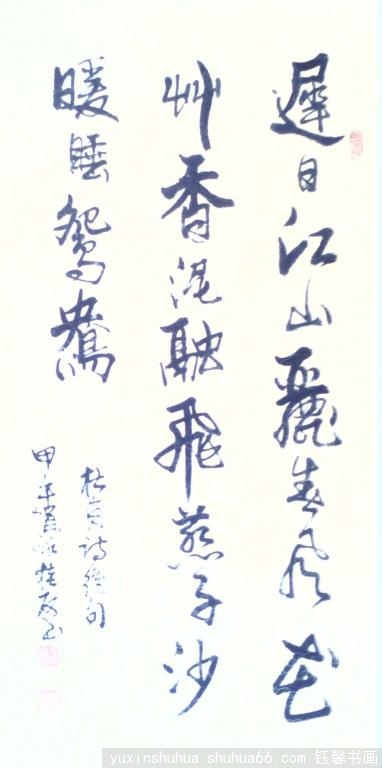 遲日江山麗春風花
艸香泥融飛燕子沙
暖睡鴛鴦
杜甫詩絕句
甲午
yuxinshuhua.shuhua66.com 钰馨书画